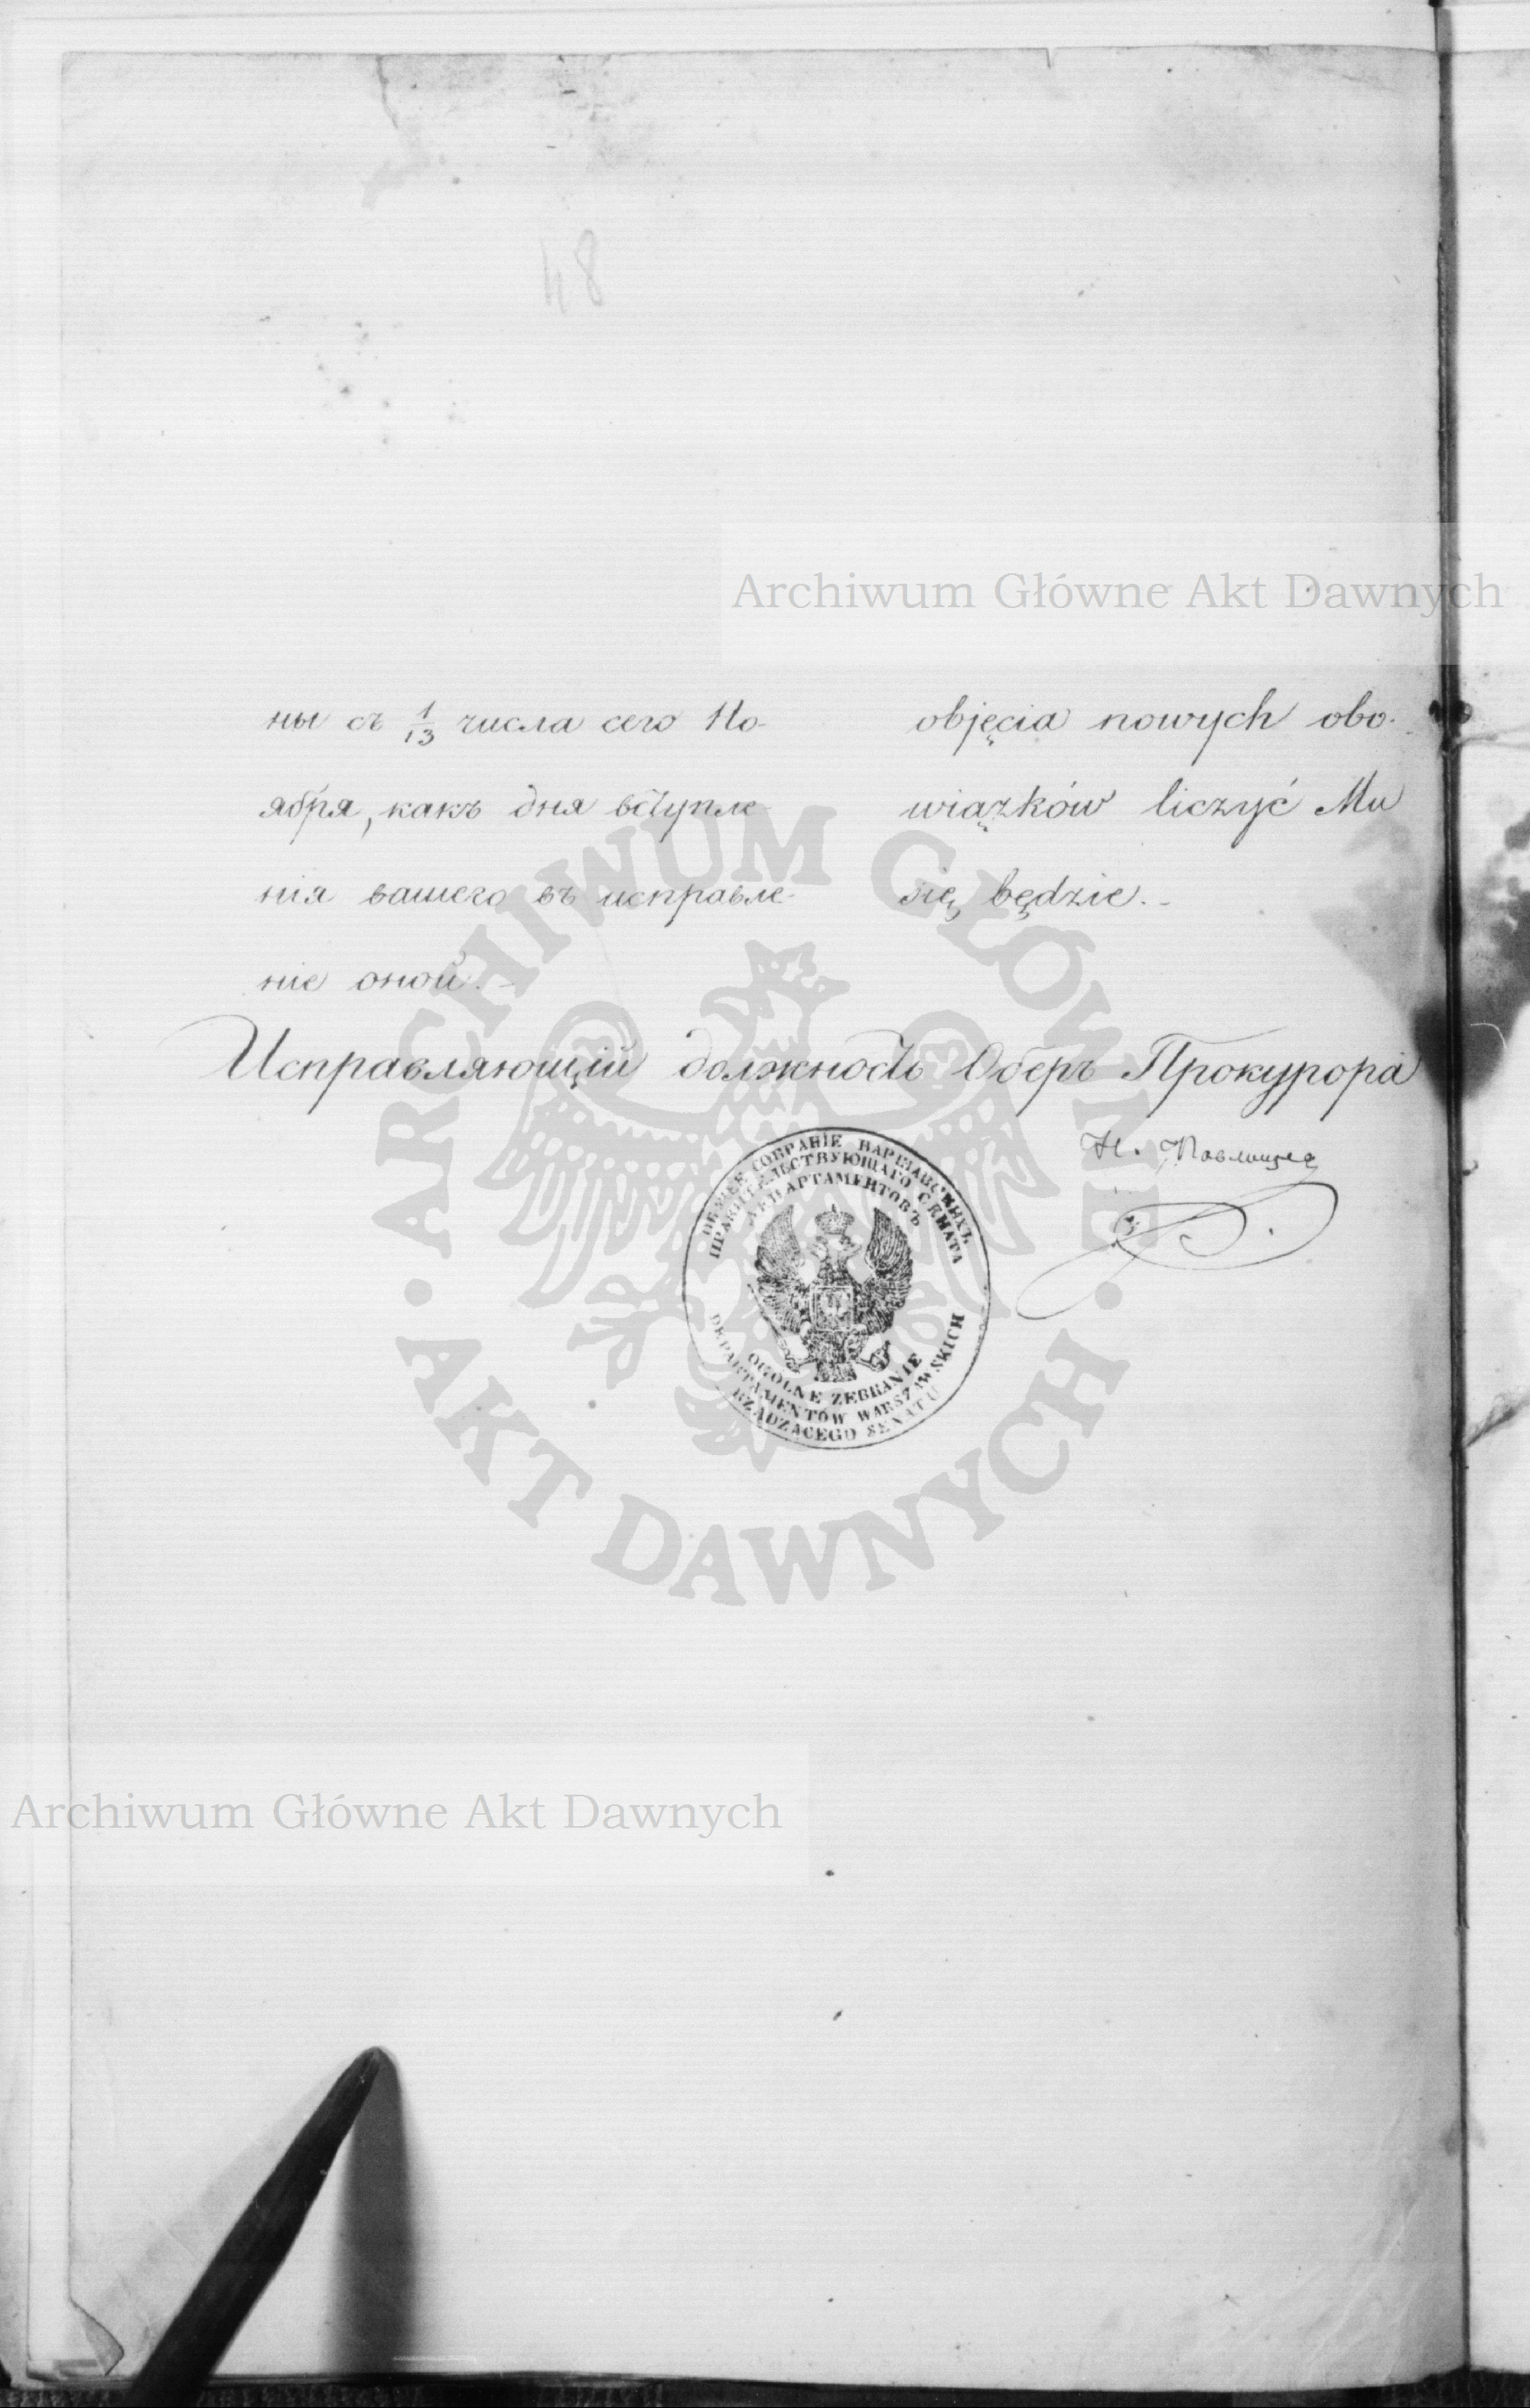 48
Archiwum Główne Akt Dawnych
ны съ 1/13 числа сего Но-
ября, какъ дня вступле-
нія вашего въ исправле-
ніе оной. -
objęcia nowych obo-
wiązków liczyć Mu
się będzie. -
Исправляющій должность Оберъ Прокурора
Н. Павлищев
ОБЩЕЕ СОБРАНІЕ ВАРШАВСКИХЪ
ПРАВИТЕЛЬСТВУЮЩАГО СЕНАТА
ДЕПАРТАМЕНТОВЪ
OGÓLNE ZEBRANIE
DEPARTAMENTÓW WARSZAWSKICH
RZĄDZĄCEGO SENATU
ARCHIWUM GŁÓWNE
· AKT DAWNYCH ·
Archiwum Główne Akt Dawnych